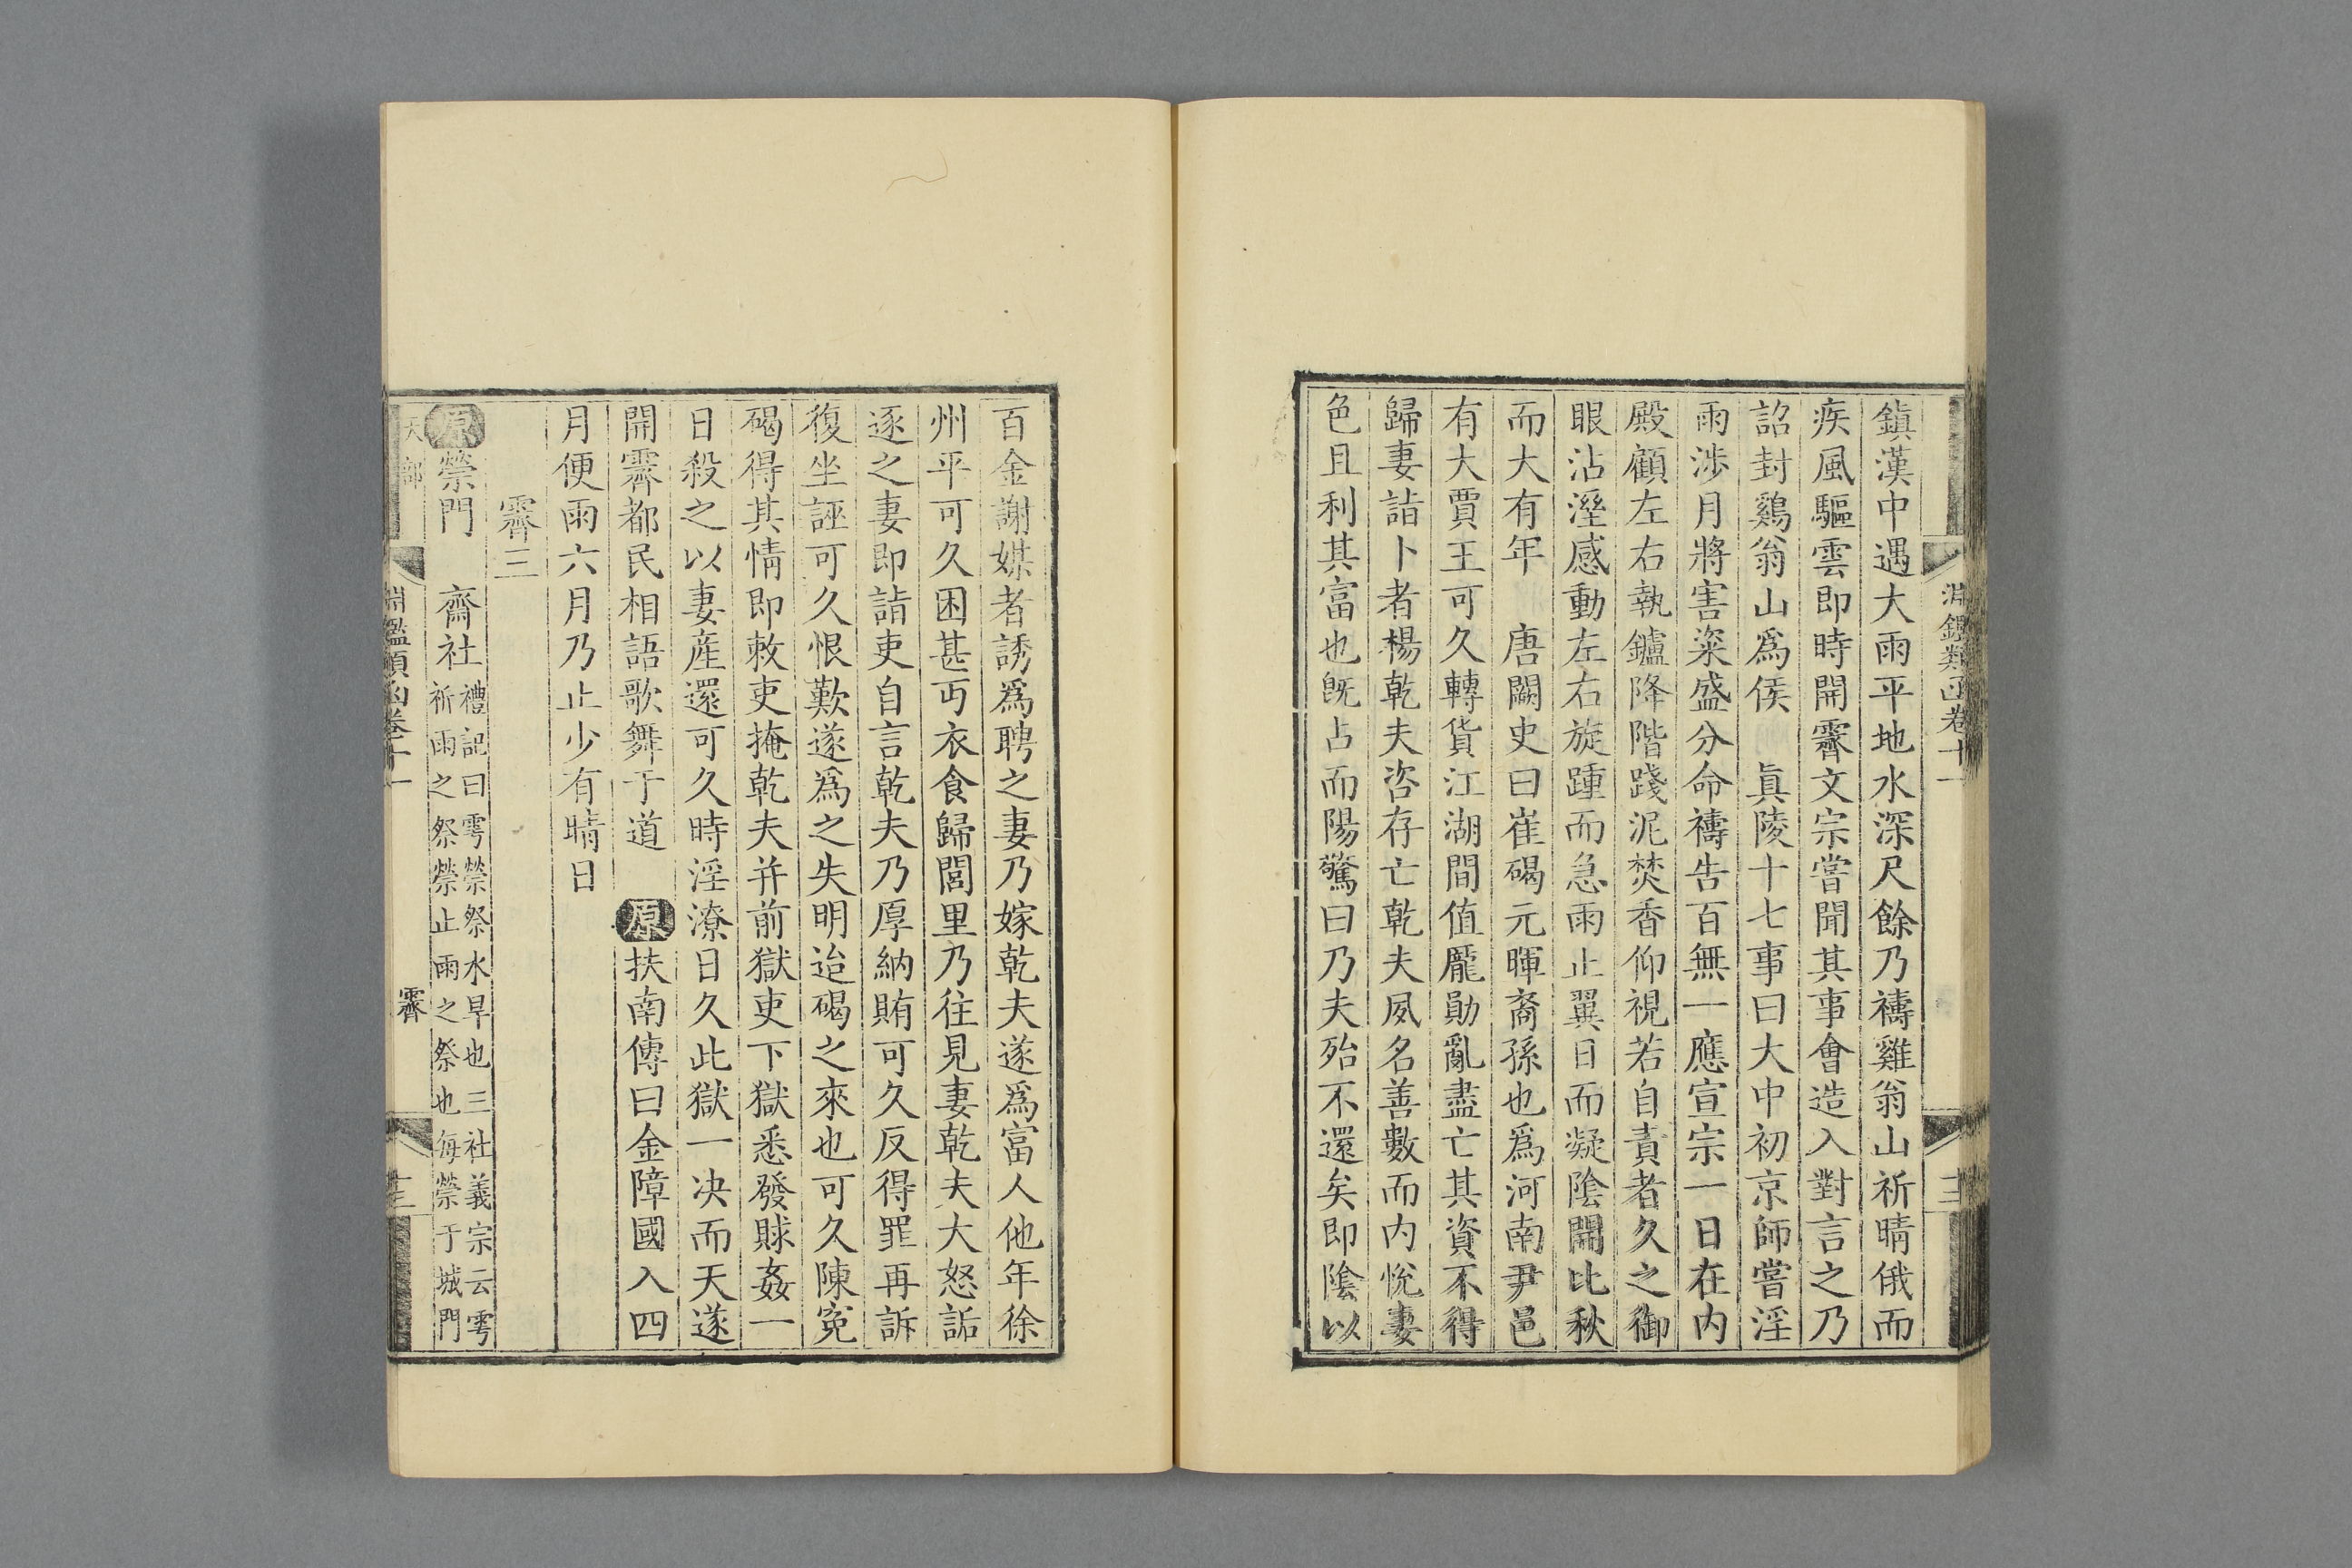 淵鑑類函卷十一
鎮漢中遇大雨平地水深尺餘乃禱雞翁山祈晴俄而
疾風驅雲即時開霽文宗嘗聞其事會造入對言之乃
詔封鷄翁山爲侯　眞陵十七事曰大中初京師嘗淫
雨渉月將害粢盛分命禱告百無一應宣宗一日在内
殿顧左右執鑪降階踐泥焚香仰視若自責者久之御
眼沾溼感動左右旋踵而急雨止翼日而凝陰開比秋
而大有年　唐闕史曰崔碣元暉裔孫也爲河南尹邑
有大賈王可久轉貨江湖間值龎勛亂盡亡其資不得
歸妻詣卜者楊乾夫咨存亡乾夫夙名善數而内悅妻
色且利其富也旣占而陽驚曰乃夫殆不還矣即陰以
百金謝媒者誘爲聘之妻乃嫁乾夫遂爲富人他年徐
州平可久困甚丐衣食歸閭里乃往見妻乾夫大怒詬
逐之妻即詣吏自言乾夫乃厚納賄可久反得罪再訴
復坐誣可久恨歎遂爲之失明迨碣之來也可久陳寃
碣得其情即敕吏掩乾夫并前獄吏下獄悉發賕姦一
日殺之以妻産還可久時淫潦日久此獄一决而天遂
開霽都民相語歌舞于道　原扶南傳曰金障國入四
月便雨六月乃止少有晴日
霽三
原禜門　齋社禮記曰雩禜祭水旱也三社義宗云雩
祈雨之祭禜止雨之祭也每禜于城門
天部　淵鑑類函卷十一　霽　十三